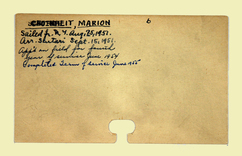 MARION 6
Sailed fr. N.Y. Aug. 28, 1951.
Arr. Sept. 15, 1951.
App'd on field for
term of service June 1954
Completed Term of service June '55